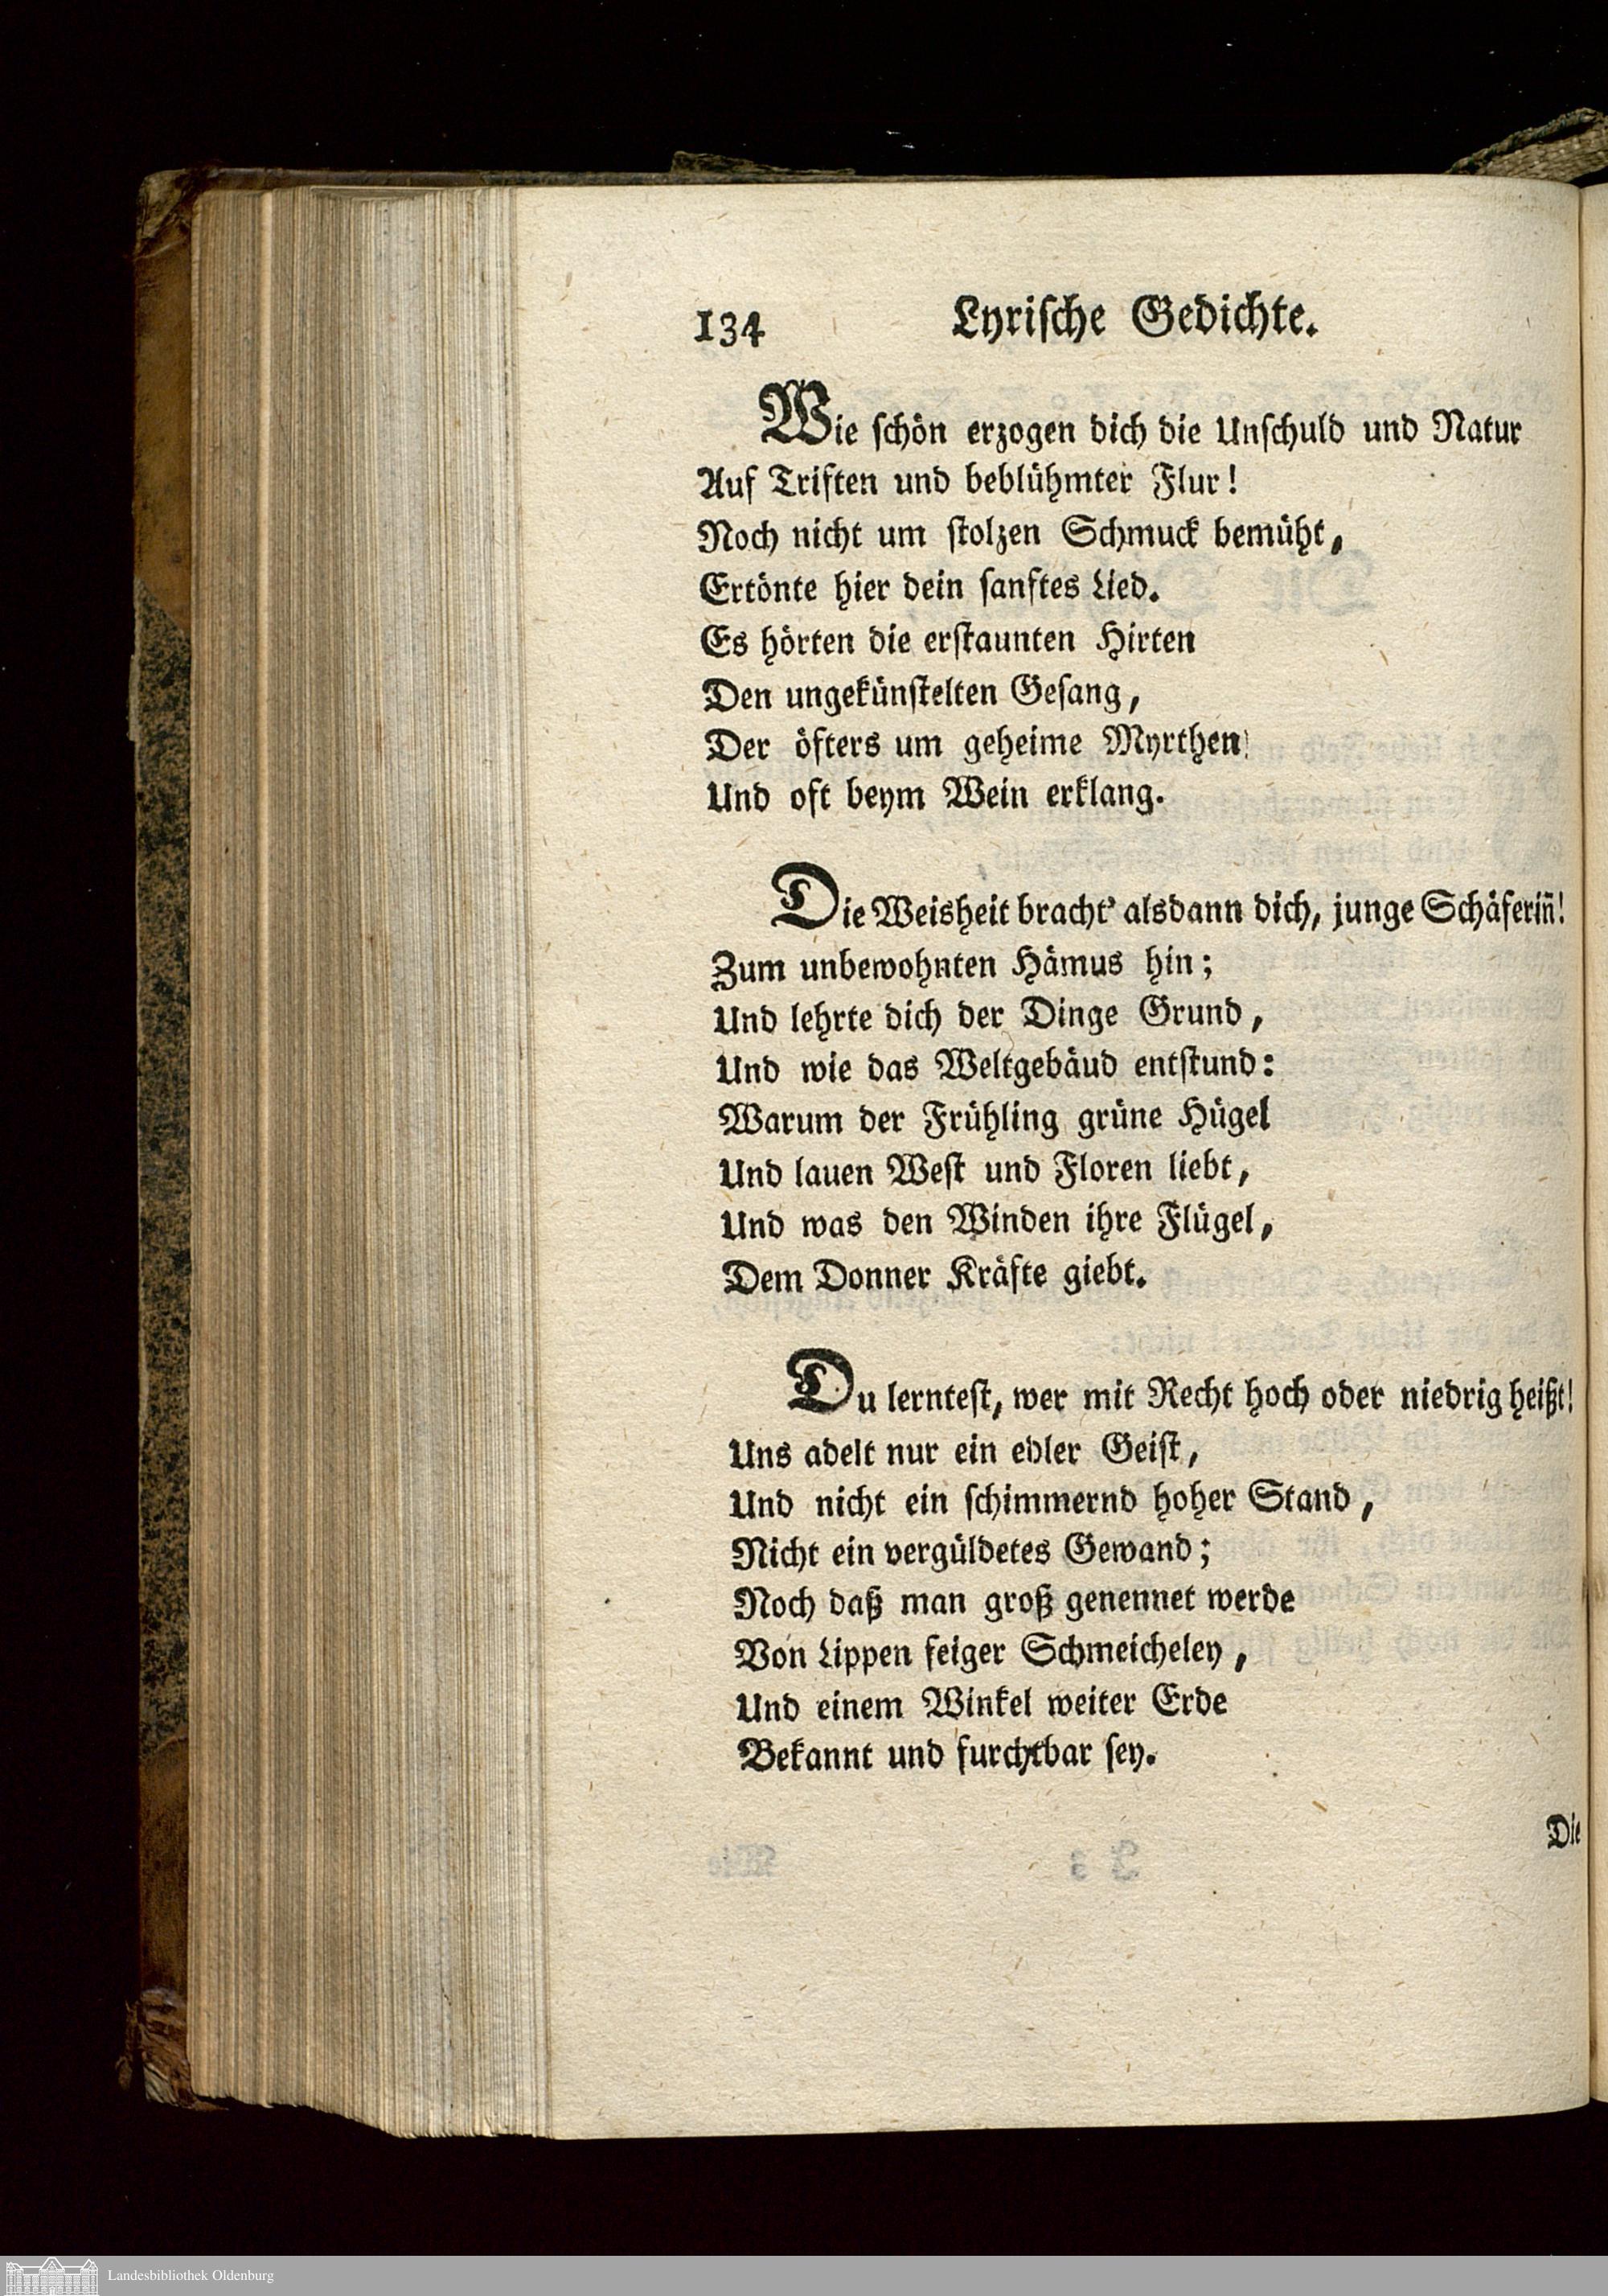 134 Lyrische Gedichte.
Wie schön erzogen dich die Unschuld und Natur
Auf Triften und beblühmter Flur!
Noch nicht um stolzen Schmuck bemüht,
Ertönte hier dein sanftes Lied.
Es hörten die erstaunten Hirten
Den ungekünstelten Gesang,
Der öfters um geheime Myrthen
Und oft beym Wein erklang.
Die Weisheit bracht' alsdann dich, junge Schäferin̄!
Zum unbewohnten Hämus hin;
Und lehrte dich der Dinge Grund,
Und wie das Weltgebäud entstund:
Warum der Frühling grüne Hügel
Und lauen West und Floren liebt,
Und was den Winden ihre Flügel,
Dem Donner Kräfte giebt.
Du lerntest, wer mit Recht hoch oder niedrig heißt!
Uns adelt nur ein edler Geist,
Und nicht ein schimmernd hoher Stand,
Nicht ein vergüldetes Gewand;
Noch daß man groß genennet werde
Von Lippen feiger Schmeicheley,
Und einem Winkel weiter Erde
Bekannt und furchtbar sey.
Die
Landesbibliothek Oldenburg